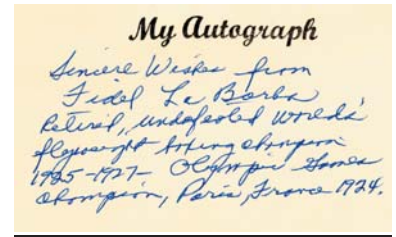 My Autograph
Sincere Wishes from
Fidel La Barba
Retired, undefeated world's
flyweight boxing champion
1925-1927- Olympic Games
champion, Paris, France 1924.